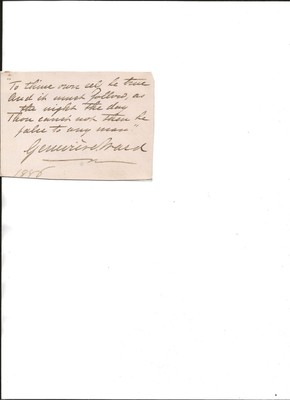 "To thine own self be true
And it must follow, as
the night the day
Thou canst not then be
false to any man"
Genevieve Ward